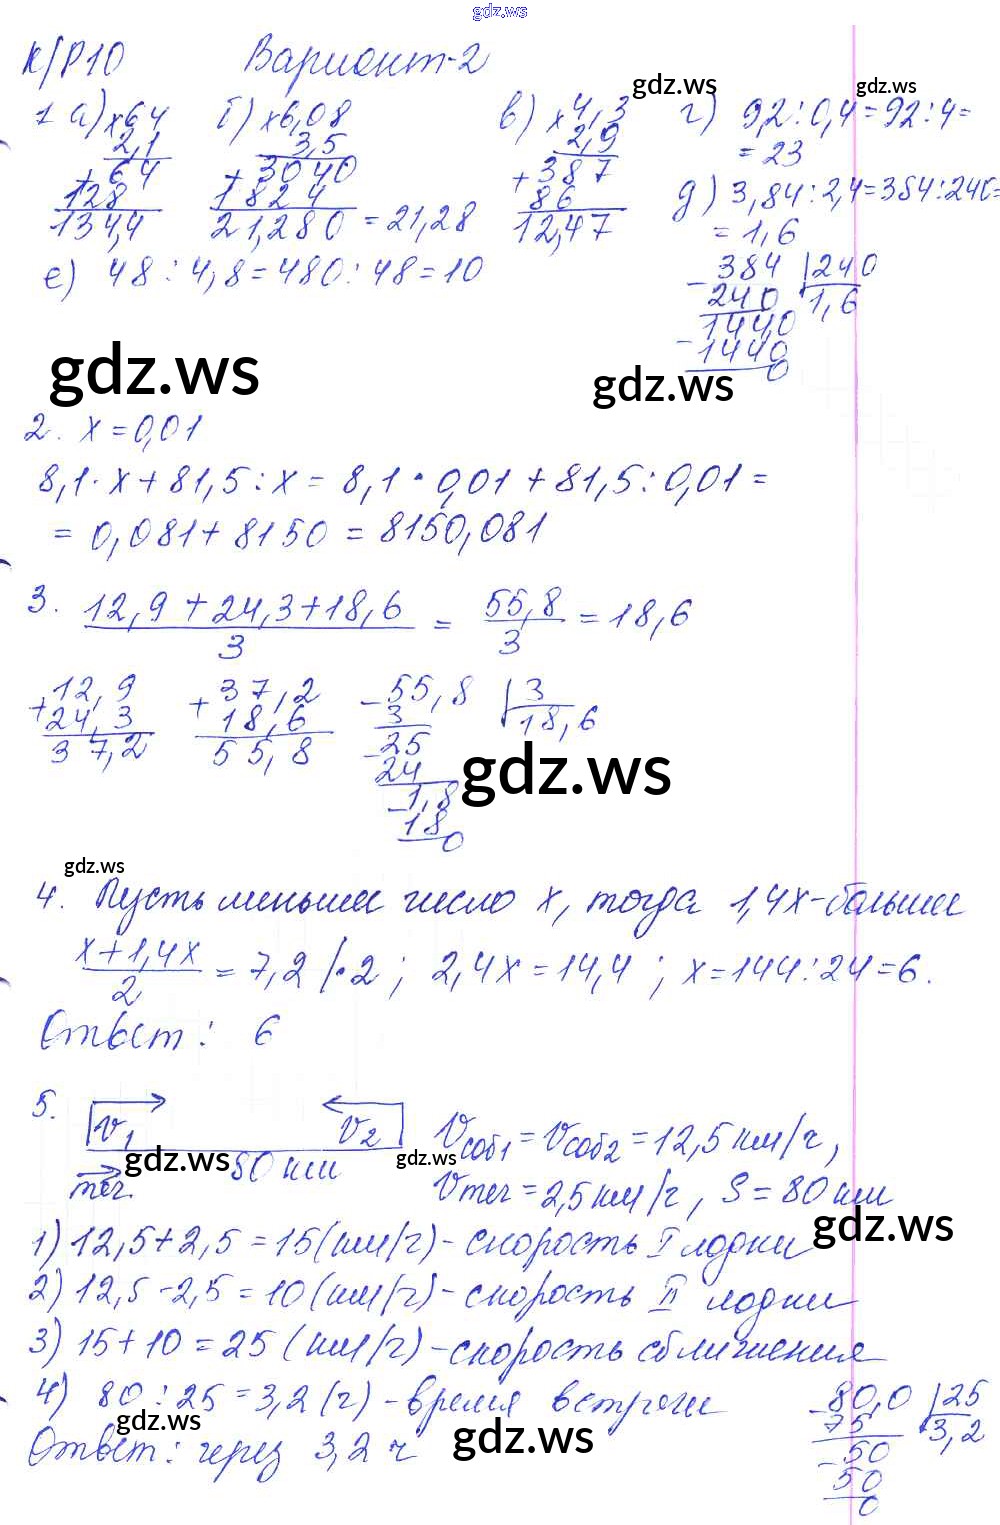 gdz.ws
К/Р10 Вариант-2
1 а) х64 б) х6,08 в) х4,3 г) 9,2:0,4=92:4=
2,1 3,5 2,9 =23
+64 +3040 +387 д) 3,84:2,4=384:240=
128 1824 86 =1,6
134,4 21,280=21,28 12,47
е) 48:4,8=480:48=10
-384 |240
240 1,6
1440
-1440
0
gdz.ws
gdz.ws
gdz.ws
gdz.ws
2. х=0,01
8,1·х+81,5:х=8,1·0,01+81,5:0,01=
=0,081+8150=8150,081
3. 12,9+24,3+18,6 = 55,8 =18,6
3 3
+12,9 +37,2 -55,8 |3
24,3 18,6 3 18,6
37,2 55,8 -25
24
-1,8
18
0
gdz.ws
gdz.ws
4. Пусть меньшее число х, тогда 1,4х-большее
х+1,4х =7,2 |·2; 2,4х=14,4; х=144:24=6.
2
Ответ: 6
5. V1 V2 Vсоб1=Vсоб2=12,5км/ч,
gdz.ws 80км gdz.ws
теч. Vтеч=2,5км/ч, S=80км
gdz.ws
1) 12,5+2,5=15(км/ч)-скорость I лодки
2) 12,5-2,5=10(км/ч)-скорость II лодки
3) 15+10=25(км/ч)-скорость сближения
4) 80:25=3,2(ч)-время встречи
gdz.ws
gdz.ws
Ответ: через 3,2ч
-80,0 |25
75 3,2
-50
50
0